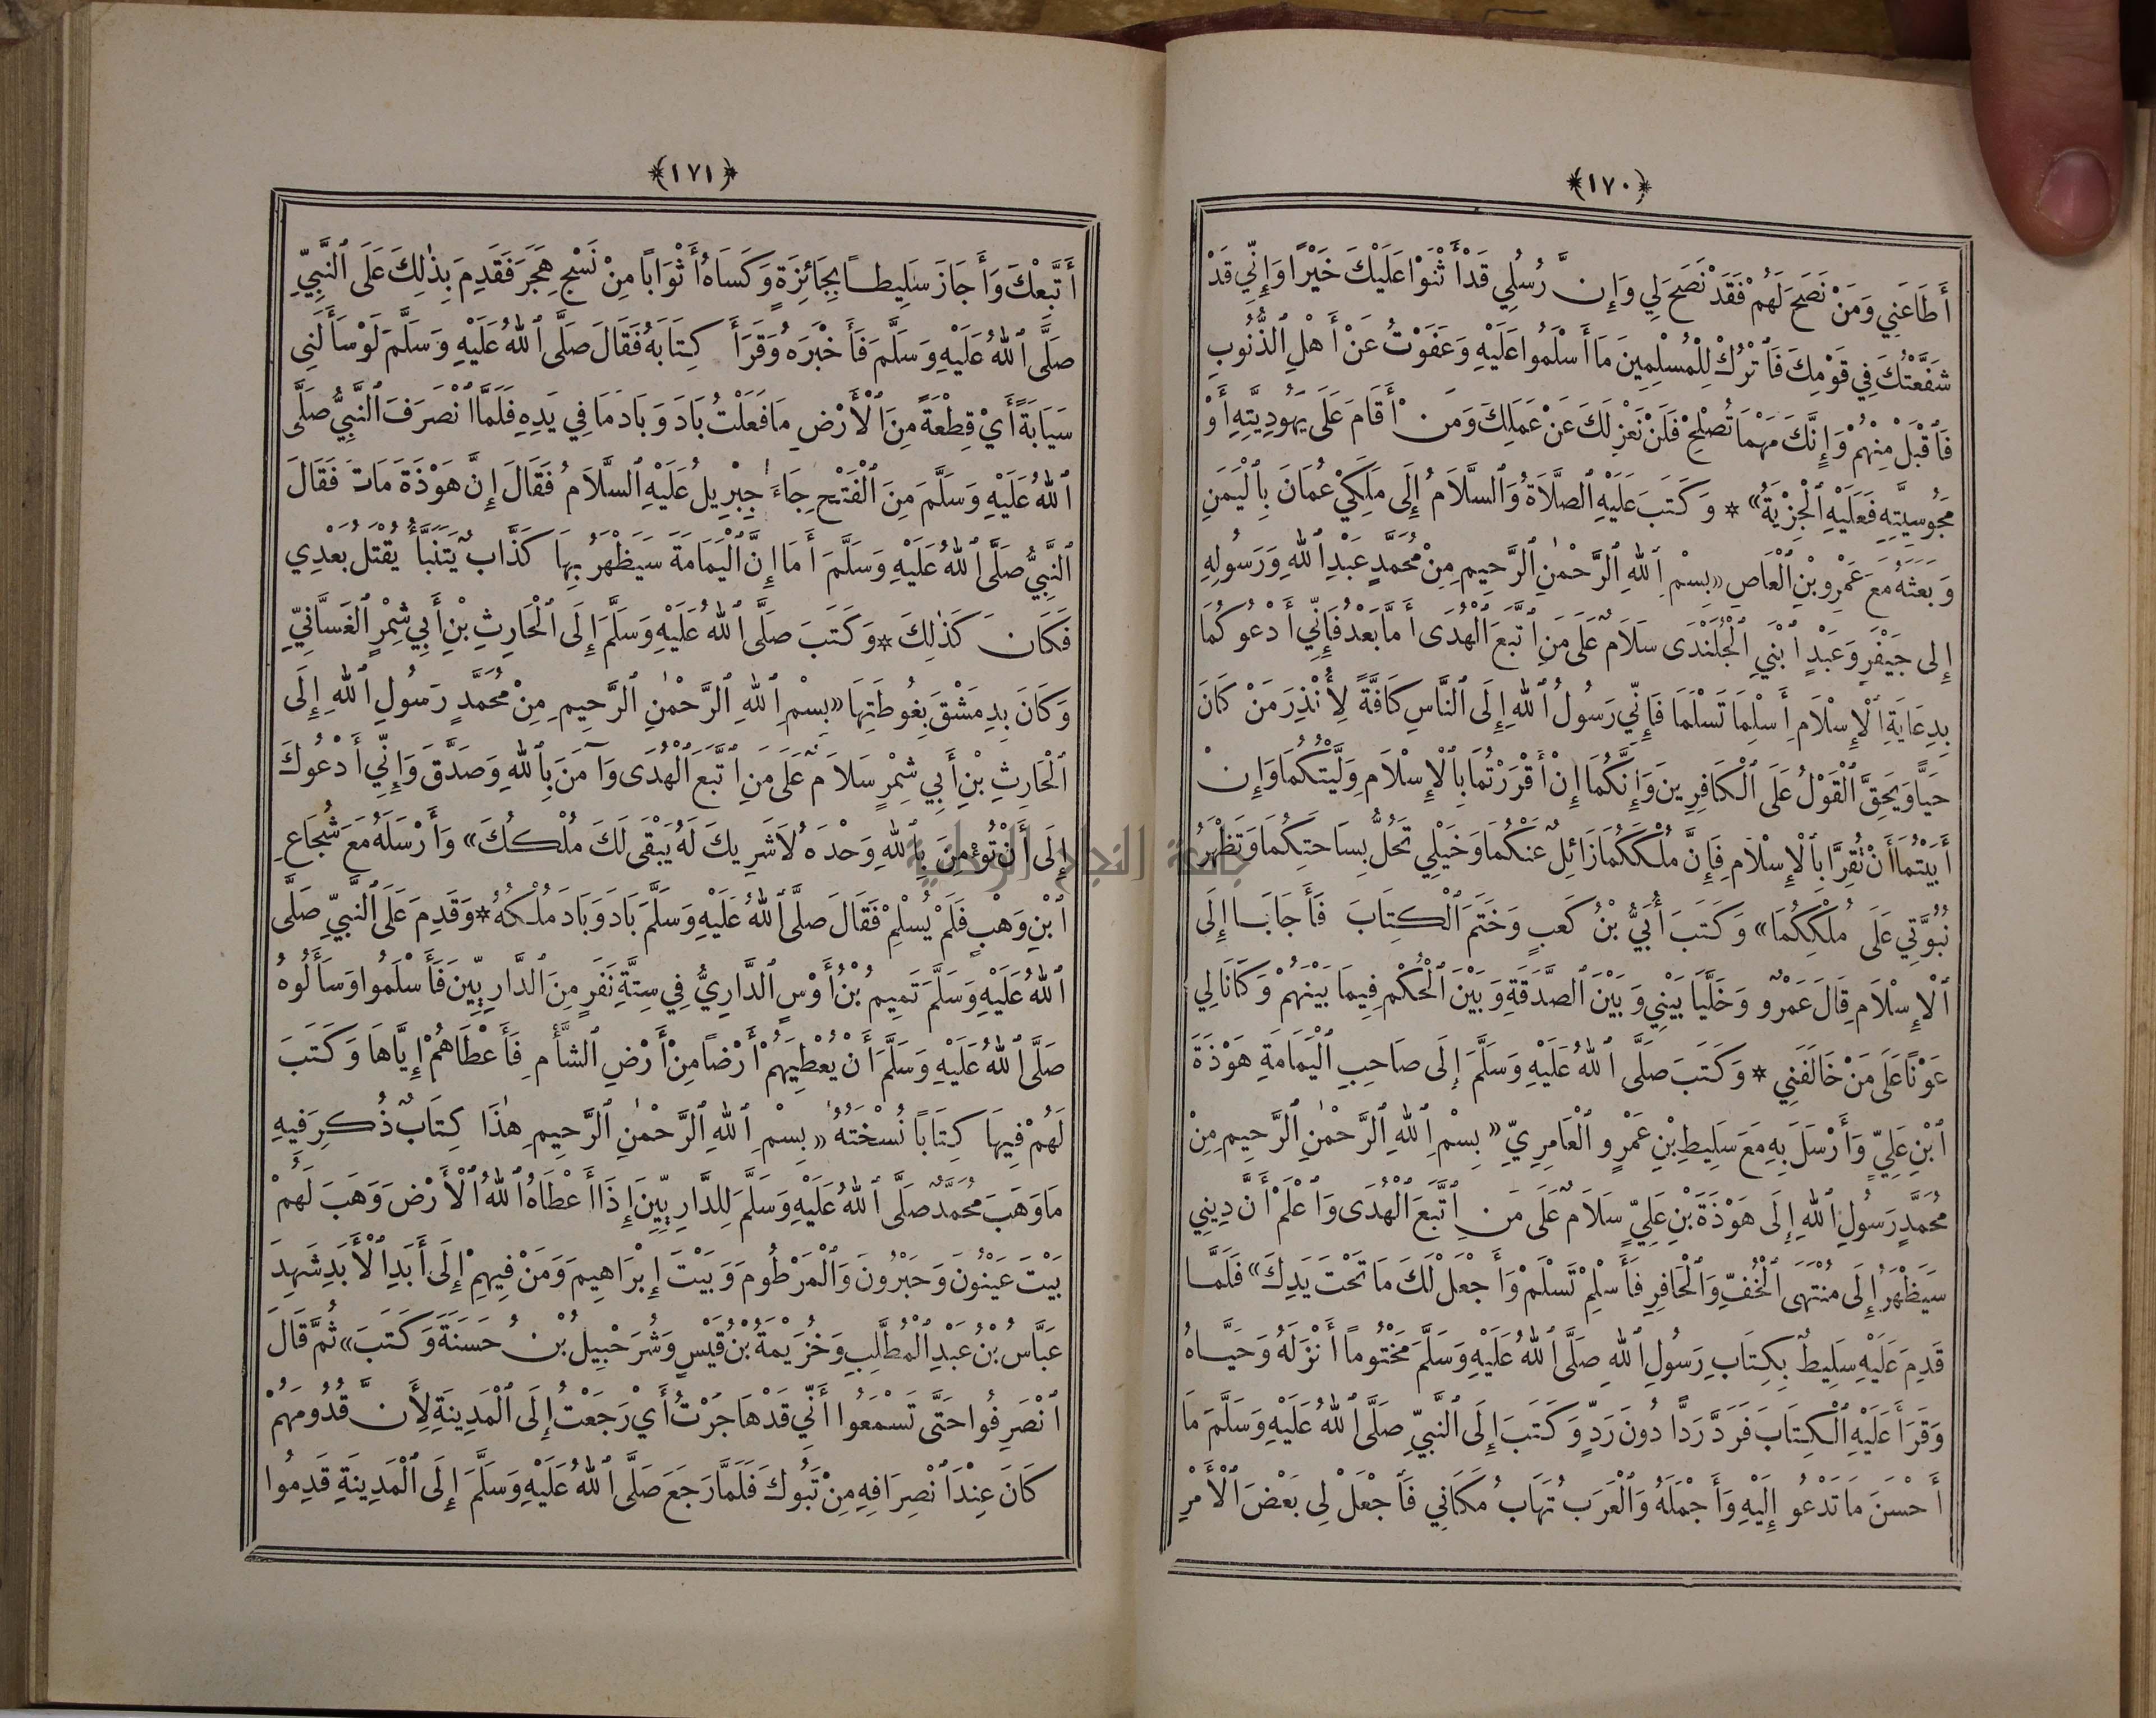 ﴿١٧٠﴾
أَطَاعَنِي وَمَنْ نَصَحَ لَهُمْ فَقَدْ نَصَحَ لِي وَإِنَّ رُسُلِي قَدْ أَثْنَوْا عَلَيْكَ خَيْرًا وَإِنِّي قَدْ
شَفَّعْتُكَ فِي قَوْمِكَ فَٱتْرُكْ لِلْمُسْلِمِينَ مَا أَسْلَمُوا عَلَيْهِ وَعَفَوْتُ عَنْ أَهْلِ ٱلذُّنُوبِ
فَٱقْبَلْ مِنْهُمْ وَإِنَّكَ مَهْمَا تُصْلِحْ فَلَنْ نَعْزِلَكَ عَنْ عَمَلِكَ وَمَنْ أَقَامَ عَلَى يَهُودِيَّتِهِ أَوْ
مَجُوسِيَّتِهِ فَعَلَيْهِ ٱلْجِزْيَةُ» * وَكَتَبَ عَلَيْهِ ٱلصَّلَاةُ وَٱلسَّلَامُ إِلَى مَلِكَيْ عُمَانَ بِٱلْيَمَنِ
وَبَعَثَهُ مَعَ عَمْرِو بْنِ ٱلْعَاصِ «بِسْمِ ٱللهِ ٱلرَّحْمٰنِ ٱلرَّحِيمِ مِنْ مُحَمَّدٍ عَبْدِ ٱللهِ وَرَسُولِهِ
إِلَى جَيْفَرٍ وَعَبْدٍ ٱبْنَيِ ٱلْجُلَنْدَى سَلَامٌ عَلَى مَنِ ٱتَّبَعَ ٱلْهُدَى أَمَّا بَعْدُ فَإِنِّي أَدْعُوكُمَا
بِدِعَايَةِ ٱلْإِسْلَامِ أَسْلِمَا تَسْلَمَا فَإِنِّي رَسُولُ ٱللهِ إِلَى ٱلنَّاسِ كَافَّةً لِأُنْذِرَ مَنْ كَانَ
حَيًّا وَيَحِقَّ ٱلْقَوْلُ عَلَى ٱلْكَافِرِينَ وَإِنَّكُمَا إِنْ أَقْرَرْتُمَا بِٱلْإِسْلَامِ وَلَّيْتُكُمَا وَإِنْ
أَبَيْتُمَا أَنْ تُقِرَّا بِٱلْإِسْلَامِ فَإِنَّ مُلْكَكُمَا زَائِلٌ عَنْكُمَا وَخَيْلِي تَحُلُّ بِسَاحَتِكُمَا وَتَظْهَرُ
نُبُوَّتِي عَلَى مُلْكِكُمَا» وَكَتَبَ أُبَيُّ بْنُ كَعَبٍ وَخَتَمَ ٱلْكِتَابَ فَأَجَابَا إِلَى
ٱلْإِسْلَامِ قَالَ عَمْرٌو وَخَلَّيَا بَيْنِي وَبَيْنَ ٱلصَّدَقَةِ وَبَيْنَ ٱلْحُكْمِ فِيمَا بَيْنَهُمْ وَكَانَا لِي
عَوْنًا عَلَى مَنْ خَالَفَنِي * وَكَتَبَ صَلَّى ٱللهُ عَلَيْهِ وَسَلَّمَ إِلَى صَاحِبِ ٱلْيَمَامَةِ هَوْذَةَ
ٱبْنِ عَلِيٍّ وَأَرْسَلَ بِهِ مَعَ سَلِيطِ بْنِ عَمْرٍو ٱلْعَامِرِيِّ «بِسْمِ ٱللهِ ٱلرَّحْمٰنِ ٱلرَّحِيمِ مِنْ
مُحَمَّدٍ رَسُولِ ٱللهِ إِلَى هَوْذَةَ بْنِ عَلِيٍّ سَلَامٌ عَلَى مَنِ ٱتَّبَعَ ٱلْهُدَى وَٱعْلَمْ أَنَّ دِينِي
سَيَظْهَرُ إِلَى مُنْتَهَى ٱلْخُفِّ وَٱلْحَافِرِ فَأَسْلِمْ تَسْلَمْ وَأَجْعَلْ لَكَ مَا تَحْتَ يَدِكَ» فَلَمَّا
قَدِمَ عَلَيْهِ سَلِيطٌ بِكِتَابِ رَسُولِ ٱللهِ صَلَّى ٱللهُ عَلَيْهِ وَسَلَّمَ مَخْتُومًا أَنْزَلَهُ وَحَيَّاهُ
وَقَرَأَ عَلَيْهِ ٱلْكِتَابَ فَرَدَّ رَدًّا دُونَ رَدٍّ وَكَتَبَ إِلَى ٱلنَّبِيِّ صَلَّى ٱللهُ عَلَيْهِ وَسَلَّمَ مَا
أَحْسَنَ مَا تَدْعُو إِلَيْهِ وَأَجْمَلَهُ وَٱلْعَرَبُ تَهَابُ مَكَانِي فَٱجْعَلْ لِي بَعْضَ ٱلْأَمْرِ
﴿١٧١﴾
أَتَّبِعْكَ وَأَجَازَ سَلِيطًا بِجَائِزَةٍ وَكَسَاهُ أَثْوَابًا مِنْ نَسْجِ هَجَرَ فَقَدِمَ بِذٰلِكَ عَلَى ٱلنَّبِيِّ
صَلَّى ٱللهُ عَلَيْهِ وَسَلَّمَ فَأَخْبَرَهُ وَقَرَأَ كِتَابَهُ فَقَالَ صَلَّى ٱللهُ عَلَيْهِ وَسَلَّمَ لَوْ سَأَلَنِي
سَيَابَةً أَيْ قِطْعَةً مِنَ ٱلْأَرْضِ مَا فَعَلْتُ بَادَ وَبَادَ مَا فِي يَدِهِ فَلَمَّا ٱنْصَرَفَ ٱلنَّبِيُّ صَلَّى
ٱللهُ عَلَيْهِ وَسَلَّمَ مِنَ ٱلْفَتْحِ جَاءَ جِبْرِيلُ عَلَيْهِ ٱلسَّلَامُ فَقَالَ إِنَّ هَوْذَةَ مَاتَ فَقَالَ
ٱلنَّبِيُّ صَلَّى ٱللهُ عَلَيْهِ وَسَلَّمَ أَمَا إِنَّ ٱلْيَمَامَةَ سَيَظْهَرُ بِهَا كَذَّابٌ يَتَنَبَّأُ يُقْتَلُ بَعْدِي
فَكَانَ كَذٰلِكَ * وَكَتَبَ صَلَّى ٱللهُ عَلَيْهِ وَسَلَّمَ إِلَى ٱلْحَارِثِ بْنِ أَبِي شِمْرٍ ٱلْغَسَّانِيِّ
وَكَانَ بِدِمَشْقَ بِغُوطَتِهَا «بِسْمِ ٱللهِ ٱلرَّحْمٰنِ ٱلرَّحِيمِ مِنْ مُحَمَّدٍ رَسُولِ ٱللهِ إِلَى
ٱلْحَارِثِ بْنِ أَبِي شِمْرٍ سَلَامٌ عَلَى مَنِ ٱتَّبَعَ ٱلْهُدَى وَآمَنَ بِٱللهِ وَصَدَّقَ وَإِنِّي أَدْعُوكَ
إِلَى أَنْ تُؤْمِنَ بِٱللهِ وَحْدَهُ لَا شَرِيكَ لَهُ يَبْقَى لَكَ مُلْكُكَ» وَأَرْسَلَهُ مَعَ شُجَاعِ
ٱبْنِ وَهْبٍ فَلَمْ يُسْلِمْ فَقَالَ صَلَّى ٱللهُ عَلَيْهِ وَسَلَّمَ بَادَ وَبَادَ مُلْكُهُ * وَقَدِمَ عَلَى ٱلنَّبِيِّ صَلَّى
ٱللهُ عَلَيْهِ وَسَلَّمَ تَمِيمُ بْنُ أَوْسٍ ٱلدَّارِيُّ فِي سِتَّةِ نَفَرٍ مِنَ ٱلدَّارِيِّينَ فَأَسْلَمُوا وَسَأَلُوهُ
صَلَّى ٱللهُ عَلَيْهِ وَسَلَّمَ أَنْ يُعْطِيَهُمْ أَرْضًا مِنْ أَرْضِ ٱلشَّأْمِ فَأَعْطَاهُمْ إِيَّاهَا وَكَتَبَ
لَهُمْ فِيهَا كِتَابًا نُسْخَتُهُ «بِسْمِ ٱللهِ ٱلرَّحْمٰنِ ٱلرَّحِيمِ هٰذَا كِتَابٌ ذُكِرَ فِيهِ
مَا وَهَبَ مُحَمَّدٌ صَلَّى ٱللهُ عَلَيْهِ وَسَلَّمَ لِلدَّارِيِّينَ إِذَا أَعْطَاهُ ٱللهُ ٱلْأَرْضَ وَهَبَ لَهُمْ
بَيْتَ عَيْنُونَ وَحَبْرُونَ وَٱلْمَرْطُومَ وَبَيْتَ إِبْرَاهِيمَ وَمَنْ فِيهِمْ إِلَى أَبَدِ ٱلْأَبَدِ شَهِدَ
عَبَّاسُ بْنُ عَبْدِ ٱلْمُطَّلِبِ وَخُزَيْمَةُ بْنُ قَيْسٍ وَشُرَحْبِيلُ بْنُ حَسَنَةَ وَكَتَبَ» ثُمَّ قَالَ
ٱنْصَرِفُوا حَتَّى تَسْمَعُوا أَنِّي قَدْ هَاجَرْتُ أَيْ رَجَعْتُ إِلَى ٱلْمَدِينَةِ لِأَنَّ قُدُومَهُمْ
كَانَ عِنْدَ ٱنْصِرَافِهِ مِنْ تَبُوكَ فَلَمَّا رَجَعَ صَلَّى ٱللهُ عَلَيْهِ وَسَلَّمَ إِلَى ٱلْمَدِينَةِ قَدِمُوا
جامعة النجاح الوطنية